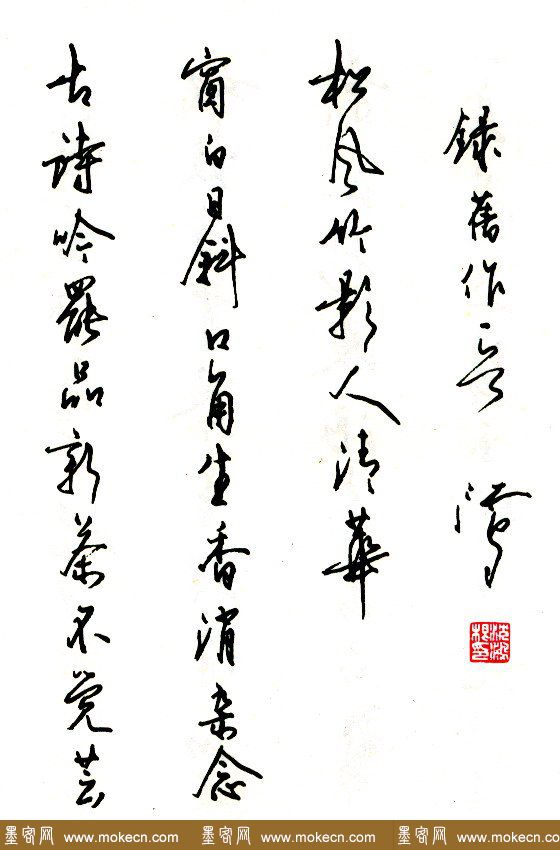 古詩吟罷品新茶不觉芸
窗白日斜口角生香消杂念
松风竹影人清華
錄舊作
墨客网 www.mokecn.com 墨客网 www.mokecn.com 墨客网 www.mokecn.com